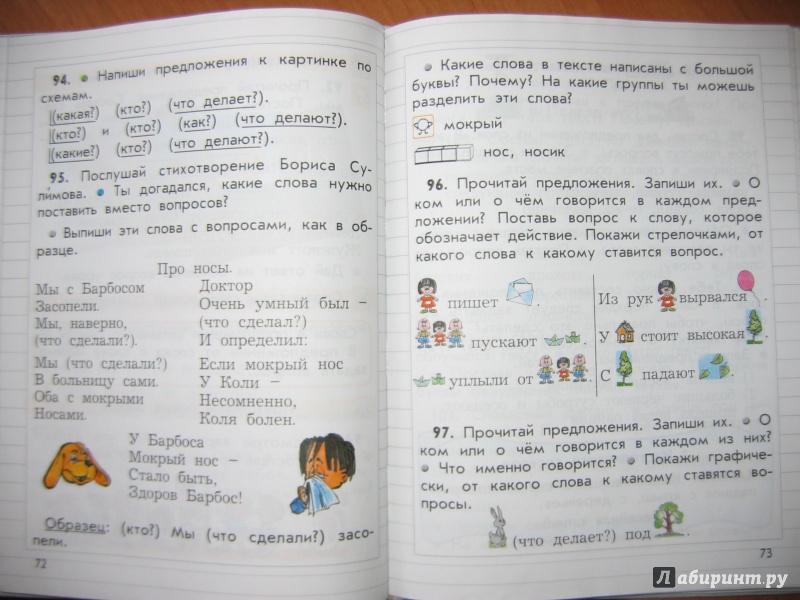 94. • Напиши предложения к картинке по
схемам.
(какая?) (кто?) (что делает?).
(кто?) и (кто?) (как?) (что делают?).
(какие?) (кто?) (что делают?).
95. Послушай стихотворение Бориса Су-
лимова. • Ты догадался, какие слова нужно
поставить вместо вопросов?
• Выпиши эти слова с вопросами, как в об-
разце.
Про носы.
Мы с Барбосом
Засопели.
Мы, наверно,
(что сделали?).
Мы (что сделали?)
В больницу сами.
Оба с мокрыми
Носами.
Доктор
Очень умный был –
(что сделал?)
И определил:
Если мокрый нос
У Коли –
Несомненно,
Коля болен.
У Барбоса
Мокрый нос –
Стало быть,
Здоров Барбос!
Образец: (кто?) Мы (что сделали?) засо-
пели.
72
• Какие слова в тексте написаны с большой
буквы? Почему? На какие группы ты можешь
разделить эти слова?
мокрый
нос, носик
96. Прочитай предложения. Запиши их. • О
ком или о чём говорится в каждом пред-
ложении? Поставь вопрос к слову, которое
обозначает действие. Покажи стрелочками, от
какого слова к какому ставится вопрос.
пишет .
пускают .
уплыли от .
Из рук вырвался .
У стоит высокая .
С падают .
97. Прочитай предложения. Запиши их. • О
ком или о чём говорится в каждом из них?
• Что именно говорится? • Покажи графиче-
ски, от какого слова к какому ставятся во-
просы.
(что делает?) под .
73
Лабиринт.ру